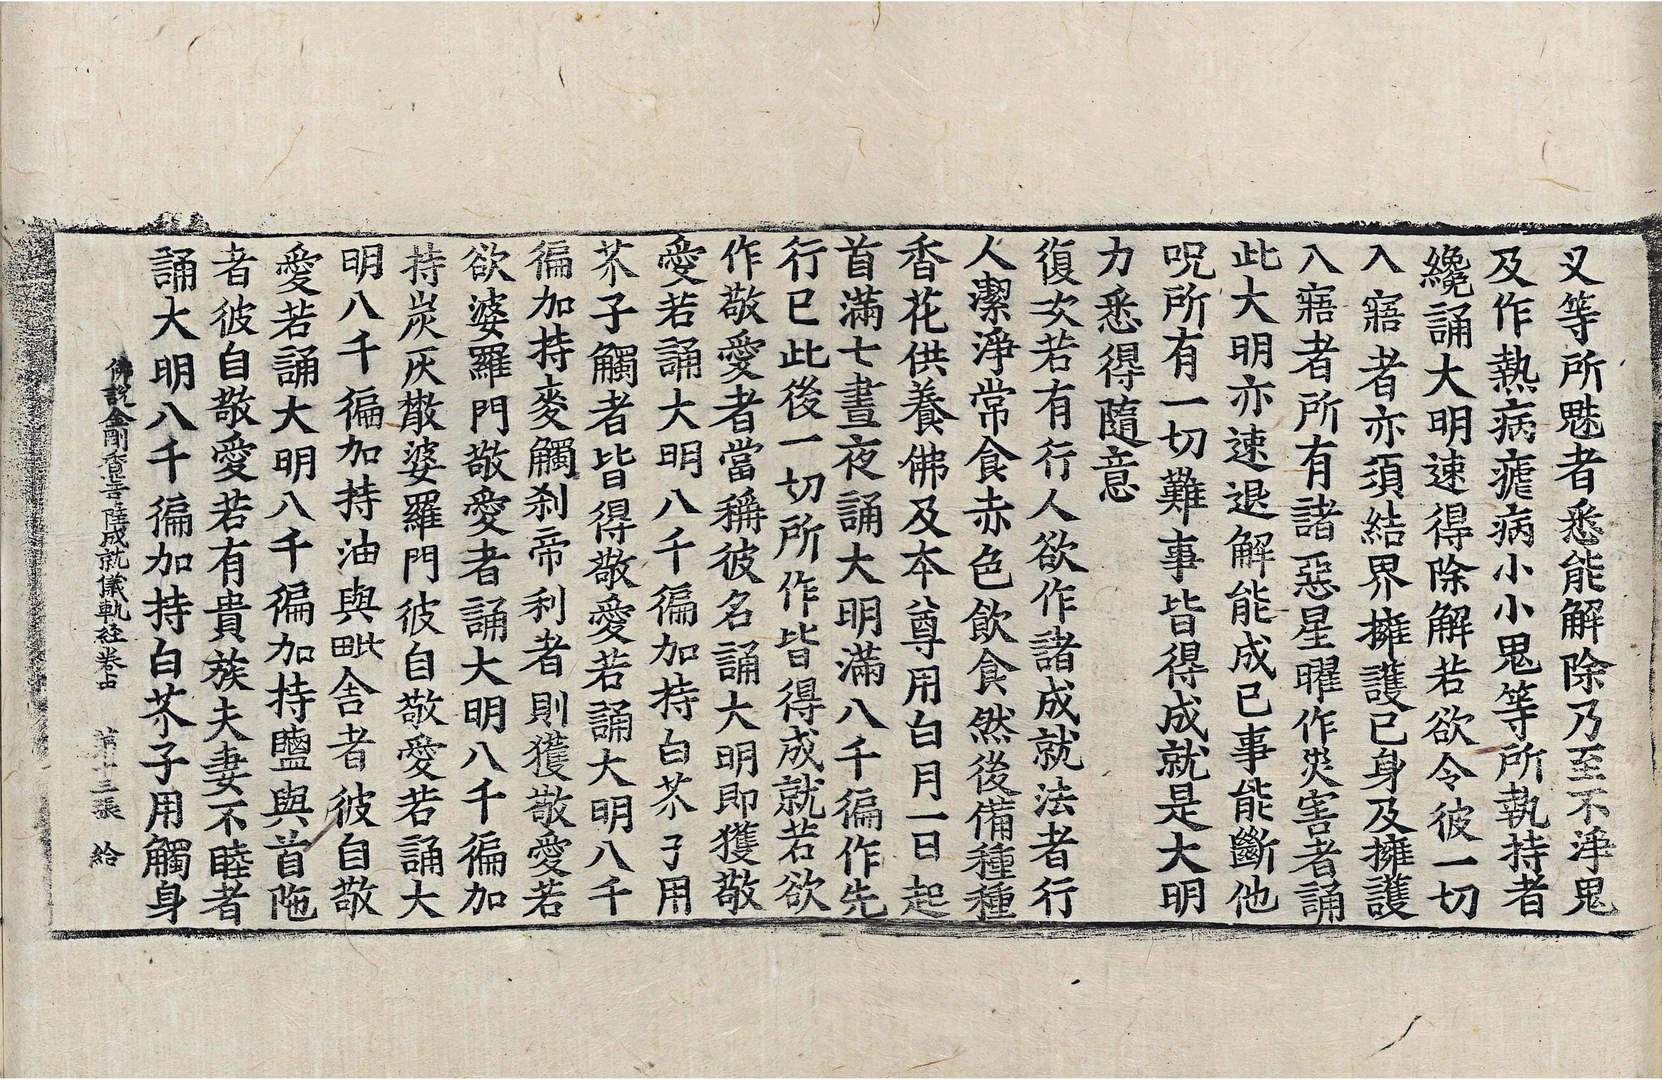 叉等所魅者悉能解除乃至不淨鬼
及作熱病瘧病小小鬼等所執持者
纔誦大明速得除解若欲令彼一切
入寤者亦須結界擁護已身及擁護
入寤者所有諸惡星曜作災害者誦
此大明亦速退解能成已事能斷他
呪所有一切難事皆得成就是大明
力悉得隨意
復次若有行人欲作諸成就法者行
人潔淨常食赤色飲食然後備種種
香花供養佛及本尊用白月一日起
首滿七晝夜誦大明滿八千徧作先
行已此後一切所作皆得成就若欲
作敬愛者當稱彼名誦大明即獲敬
愛若誦大明八千徧加持白芥子用
芥子觸者皆得敬愛若誦大明八千
徧加持麥觸剎帝利者則獲敬愛若
欲婆羅門敬愛者誦大明八千徧加
持炭灰散婆羅門彼自敬愛若誦大
明八千徧加持油與毗舍者彼自敬
愛若誦大明八千徧加持鹽與首陁
者彼自敬愛若有貴族夫妻不睦者
誦大明八千徧加持白芥子用觸身
佛說金剛香菩薩成就儀軌經卷 第十三張 給